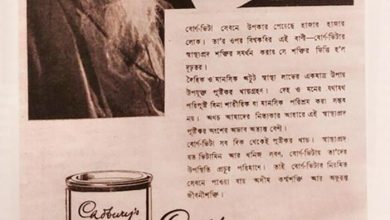 বোর্ণ-ভিটা সেবনে উপকার পেয়েছে হাজার হাজার
লোক। তা'র ওপর বিশ্বকবির এই বাণী—বোর্ণ-ভিটার
স্বাস্থ্যপ্রদ শক্তির সমর্থন করায় সে শক্তির ভিত্তি হ'ল
দৃঢ়তর।
দৈহিক ও মানসিক অটুট স্বাস্থ্য লাভের একমাত্র উপায়
উপযুক্ত পুষ্টিকর খাদ্যগ্রহণ। দেহ ও মনের যথাযথ
পরিপুষ্টি বিনা শারীরিক বা মানসিক পরিশ্রম করা সম্ভব
নয়। অথচ আমাদের নিত্যকার আহারে এই স্বাস্থ্যপ্রদ
পুষ্টিকর অংশের অভাব অত্যন্ত বেশী।
বোর্ণ-ভিটা সব দিক থেকেই পুষ্টিকর খাদ্য। স্বাস্থ্যপ্রদ
যত ভিটামিন আর খনিজ লবণ, বোর্ণ-ভিটায় তা'দের
উপস্থিতি প্রচুর পরিমাণে। তাই বোর্ণ-ভিটার নিয়মিত
সেবনে পাওয়া যায় অসীম কর্ম্মশক্তি আর অফুরন্ত
জীবনীশক্তি।
Cadbury's